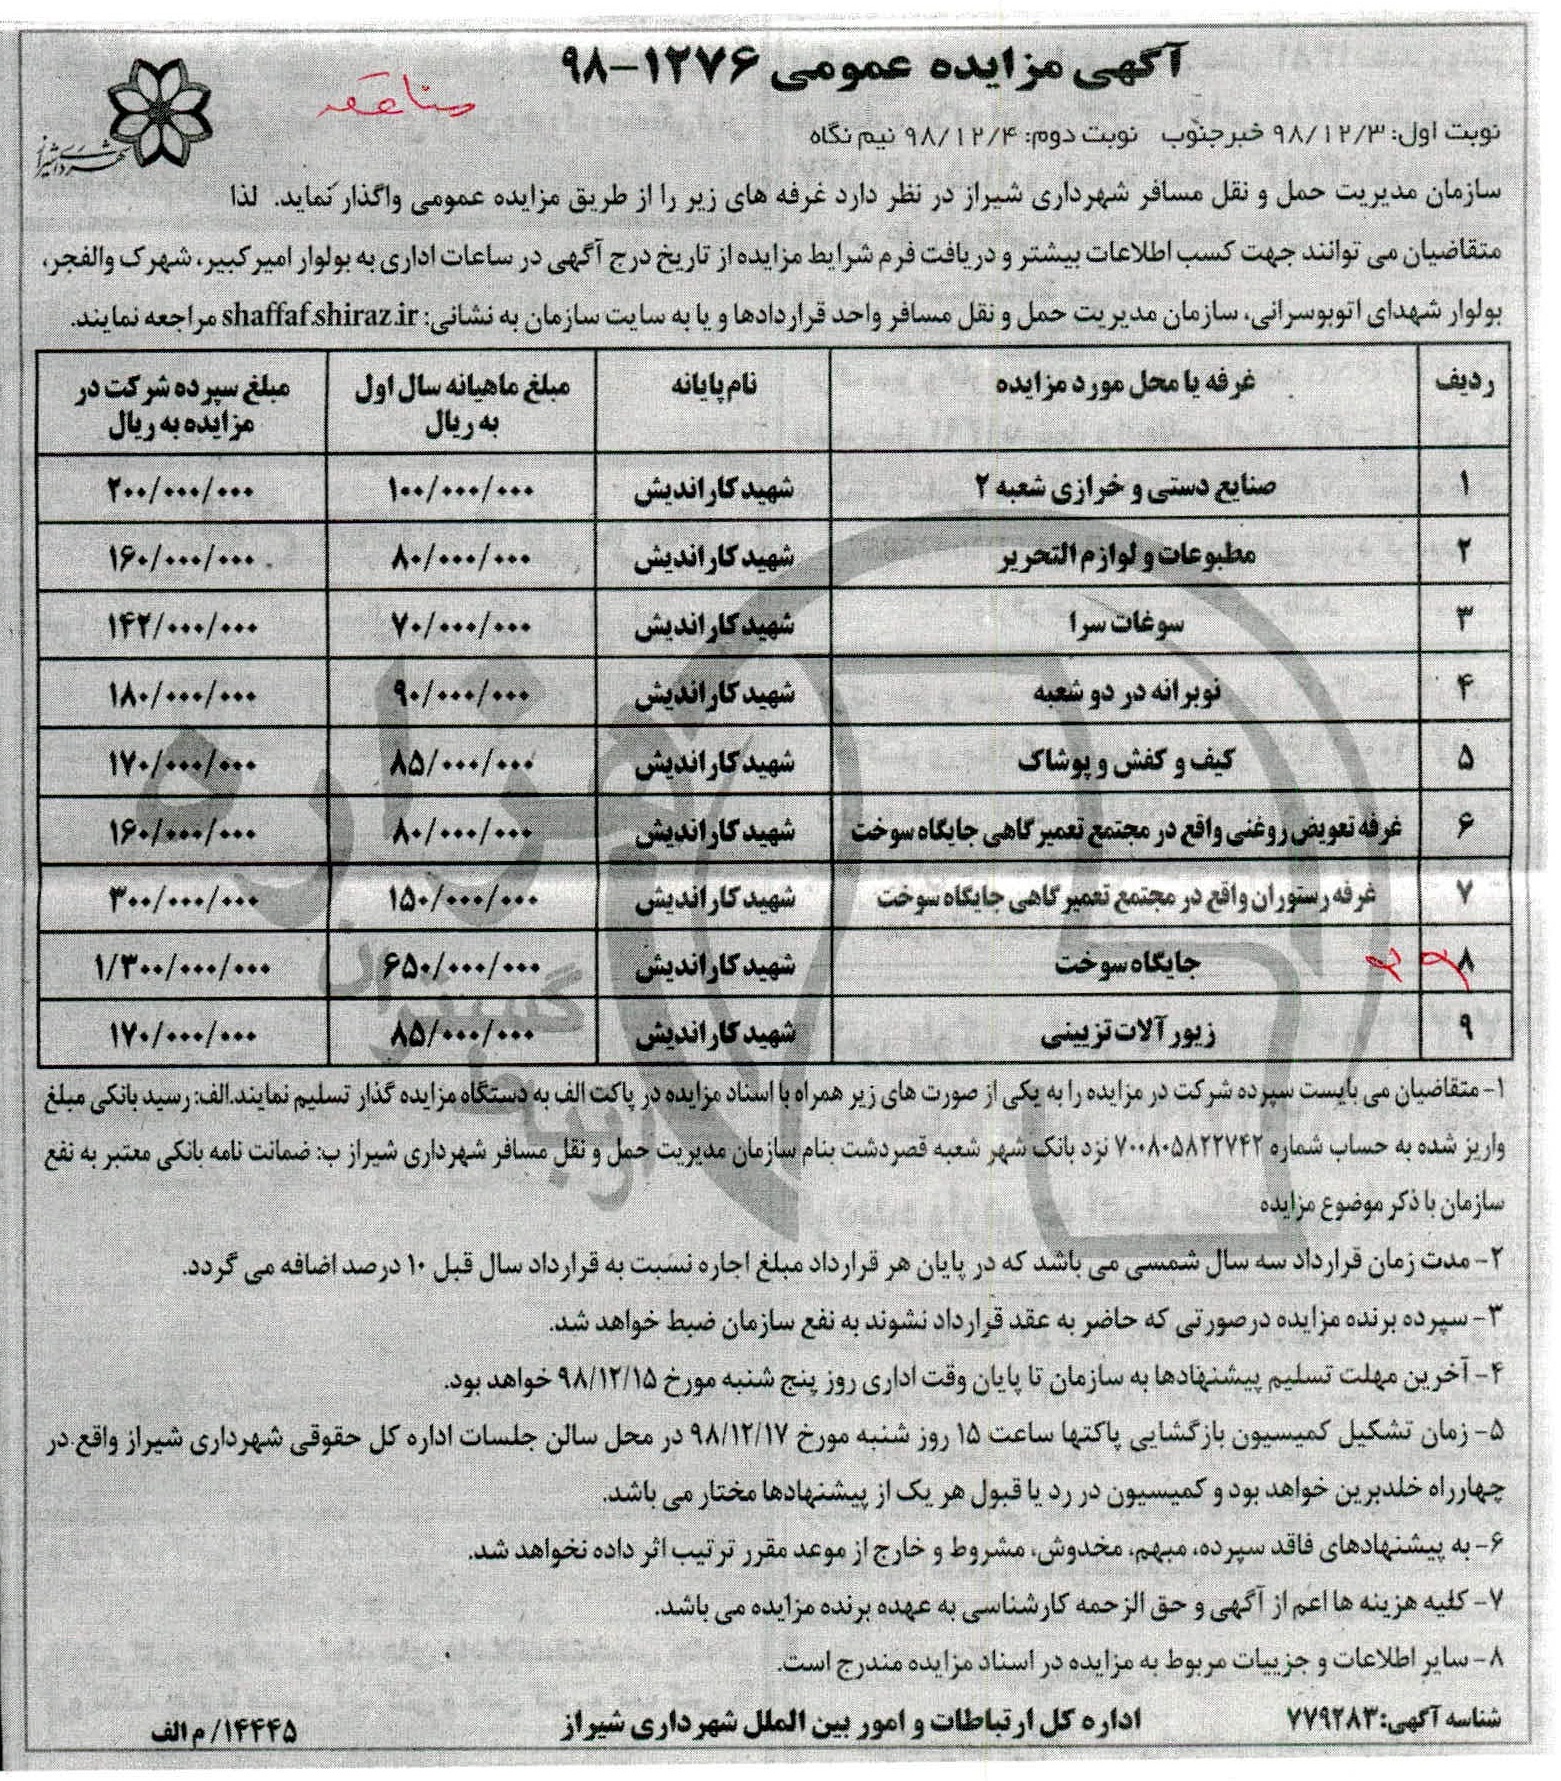 آگهی مزایده عمومی ۱۲۷۶-۹۸
مناقصه
شهرداری شیراز
نوبت اول: ۹۸/۱۲/۳ خبرجنوب نوبت دوم: ۹۸/۱۲/۴ نیم نگاه
سازمان مدیریت حمل و نقل مسافر شهرداری شیراز در نظر دارد غرفه های زیر را از طریق مزایده عمومی واگذار نماید. لذا
متقاضیان می توانند جهت کسب اطلاعات بیشتر و دریافت فرم شرایط مزایده از تاریخ درج آگهی در ساعات اداری به بولوار امیرکبیر، شهرک والفجر،
بولوار شهدای اتوبوسرانی، سازمان مدیریت حمل و نقل مسافر واحد قراردادها و یا به سایت سازمان به نشانی: shaffaf.shiraz.ir مراجعه نمایند.
ردیف غرفه یا محل مورد مزایده نام پایانه مبلغ ماهیانه سال اول به ریال مبلغ سپرده شرکت در مزایده به ریال
۱ صنایع دستی و خرازی شعبه ۲ شهید کاراندیش ۱۰۰/۰۰۰/۰۰۰ ۲۰۰/۰۰۰/۰۰۰
۲ مطبوعات و لوازم التحریر شهید کاراندیش ۸۰/۰۰۰/۰۰۰ ۱۶۰/۰۰۰/۰۰۰
۳ سوغات سرا شهید کاراندیش ۷۰/۰۰۰/۰۰۰ ۱۴۲/۰۰۰/۰۰۰
۴ نوبرانه در دو شعبه شهید کاراندیش ۹۰/۰۰۰/۰۰۰ ۱۸۰/۰۰۰/۰۰۰
۵ کیف و کفش و پوشاک شهید کاراندیش ۸۵/۰۰۰/۰۰۰ ۱۷۰/۰۰۰/۰۰۰
۶ غرفه تعویض روغنی واقع در مجتمع تعمیرگاهی جایگاه سوخت شهید کاراندیش ۸۰/۰۰۰/۰۰۰ ۱۶۰/۰۰۰/۰۰۰
۷ غرفه رستوران واقع در مجتمع تعمیرگاهی جایگاه سوخت شهید کاراندیش ۱۵۰/۰۰۰/۰۰۰ ۳۰۰/۰۰۰/۰۰۰
۸ جایگاه سوخت شهید کاراندیش ۶۵۰/۰۰۰/۰۰۰ ۱/۳۰۰/۰۰۰/۰۰۰
۹ زیور آلات تزیینی شهید کاراندیش ۸۵/۰۰۰/۰۰۰ ۱۷۰/۰۰۰/۰۰۰
۱- متقاضیان می بایست سپرده شرکت در مزایده را به یکی از صورت های زیر همراه با اسناد مزایده در پاکت الف به دستگاه مزایده گذار تسلیم نمایند.الف: رسید بانکی مبلغ
واریز شده به حساب شماره ۷۰۰۸۰۵۸۲۲۷۴۲ نزد بانک شهر شعبه قصردشت بنام سازمان مدیریت حمل و نقل مسافر شهرداری شیراز ب: ضمانت نامه بانکی معتبر به نفع
سازمان با ذکر موضوع مزایده
۲- مدت زمان قرارداد سه سال شمسی می باشد که در پایان هر قرارداد مبلغ اجاره نسبت به قرارداد سال قبل ۱۰ درصد اضافه می گردد.
۳- سپرده برنده مزایده درصورتی که حاضر به عقد قرارداد نشوند به نفع سازمان ضبط خواهد شد.
۴- آخرین مهلت تسلیم پیشنهادها به سازمان تا پایان وقت اداری روز پنج شنبه مورخ ۹۸/۱۲/۱۵ خواهد بود.
۵- زمان تشکیل کمیسیون بازگشایی پاکتها ساعت ۱۵ روز شنبه مورخ ۹۸/۱۲/۱۷ در محل سالن جلسات اداره کل حقوقی شهرداری شیراز واقع در
چهارراه خلدبرین خواهد بود و کمیسیون در رد یا قبول هر یک از پیشنهادها مختار می باشد.
۶- به پیشنهادهای فاقد سپرده، مبهم، مخدوش، مشروط و خارج از موعد مقرر ترتیب اثر داده نخواهد شد.
۷- کلیه هزینه ها اعم از آگهی و حق الزحمه کارشناسی به عهده برنده مزایده می باشد.
۸- سایر اطلاعات و جزییات مربوط به مزایده در اسناد مزایده مندرج است.
شناسه آگهی: ۷۷۹۲۸۳ اداره کل ارتباطات و امور بین الملل شهرداری شیراز ۱۴۴۴۵/ م الف